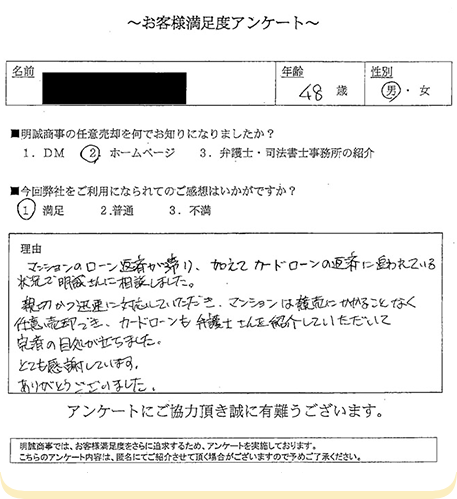 ～お客様満足度アンケート～
名前
年齢
性別
48 歳
男・女
■明誠商事の任意売却を何でお知りになりましたか？
1．DM　2　ホームページ　3．弁護士・司法書士事務所の紹介
■今回弊社をご利用になられてのご感想はいかがですか？
1　満足　2.普通　3．不満
理由
マンションのローン返済が滞り、加えてカードローンの返済に追われている
状況で明誠さんに相談しました。
親切かつ迅速に対応していただき、マンションは競売にかかることなく
任意売却でき、カードローンも弁護士さんを紹介していただいて
完済の目処が立ちました。
とても感謝しています。
ありがとうございました。
アンケートにご協力頂き誠に有難うございます。
明誠商事では、お客様満足度をさらに追求するため、アンケートを実施しております。
こちらのアンケート内容は、匿名にてご紹介させて頂く場合がございますので予めご了承ください。